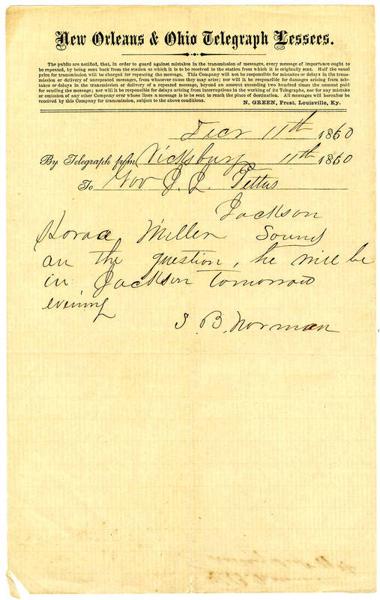 New Orleans & Ohio Telegraph Lessees.
The public are notified, that, in order to guard against mistakes in the transmission of messages, every message of importance ought to
be repeated, by being sent back from the station at which it is to be received to the station from which it is originally sent. Half the usual
price for transmission will be charged for repeating the message. This Company will not be responsible for mistakes or delays in the transmission
or delivery of unrepeated messages, from whatever cause they may arise; nor will it be responsible for damages arising from mistakes
or delays in the transmission or delivery of a repeated message, beyond an amount exceeding two hundred times the amount paid
for sending the message; nor will it be responsible for delays arising from interruptions in the working of its Telegraphs, nor for any mistake
or omission of any other Company over whose lines it is to be sent to reach the place of destination. All messages will hereafter be
received by this Company for transmission, subject to the above conditions.
N. GREEN, Prest, Louisville, Ky.
Decr 11th 1860
By Telegraph from Vicksburg 11th 1860
To Gov J. J. Pettus
Jackson
Horace Miller Sound
on the question, he will be
in Jackson tomorrow
evening
J B. Norman